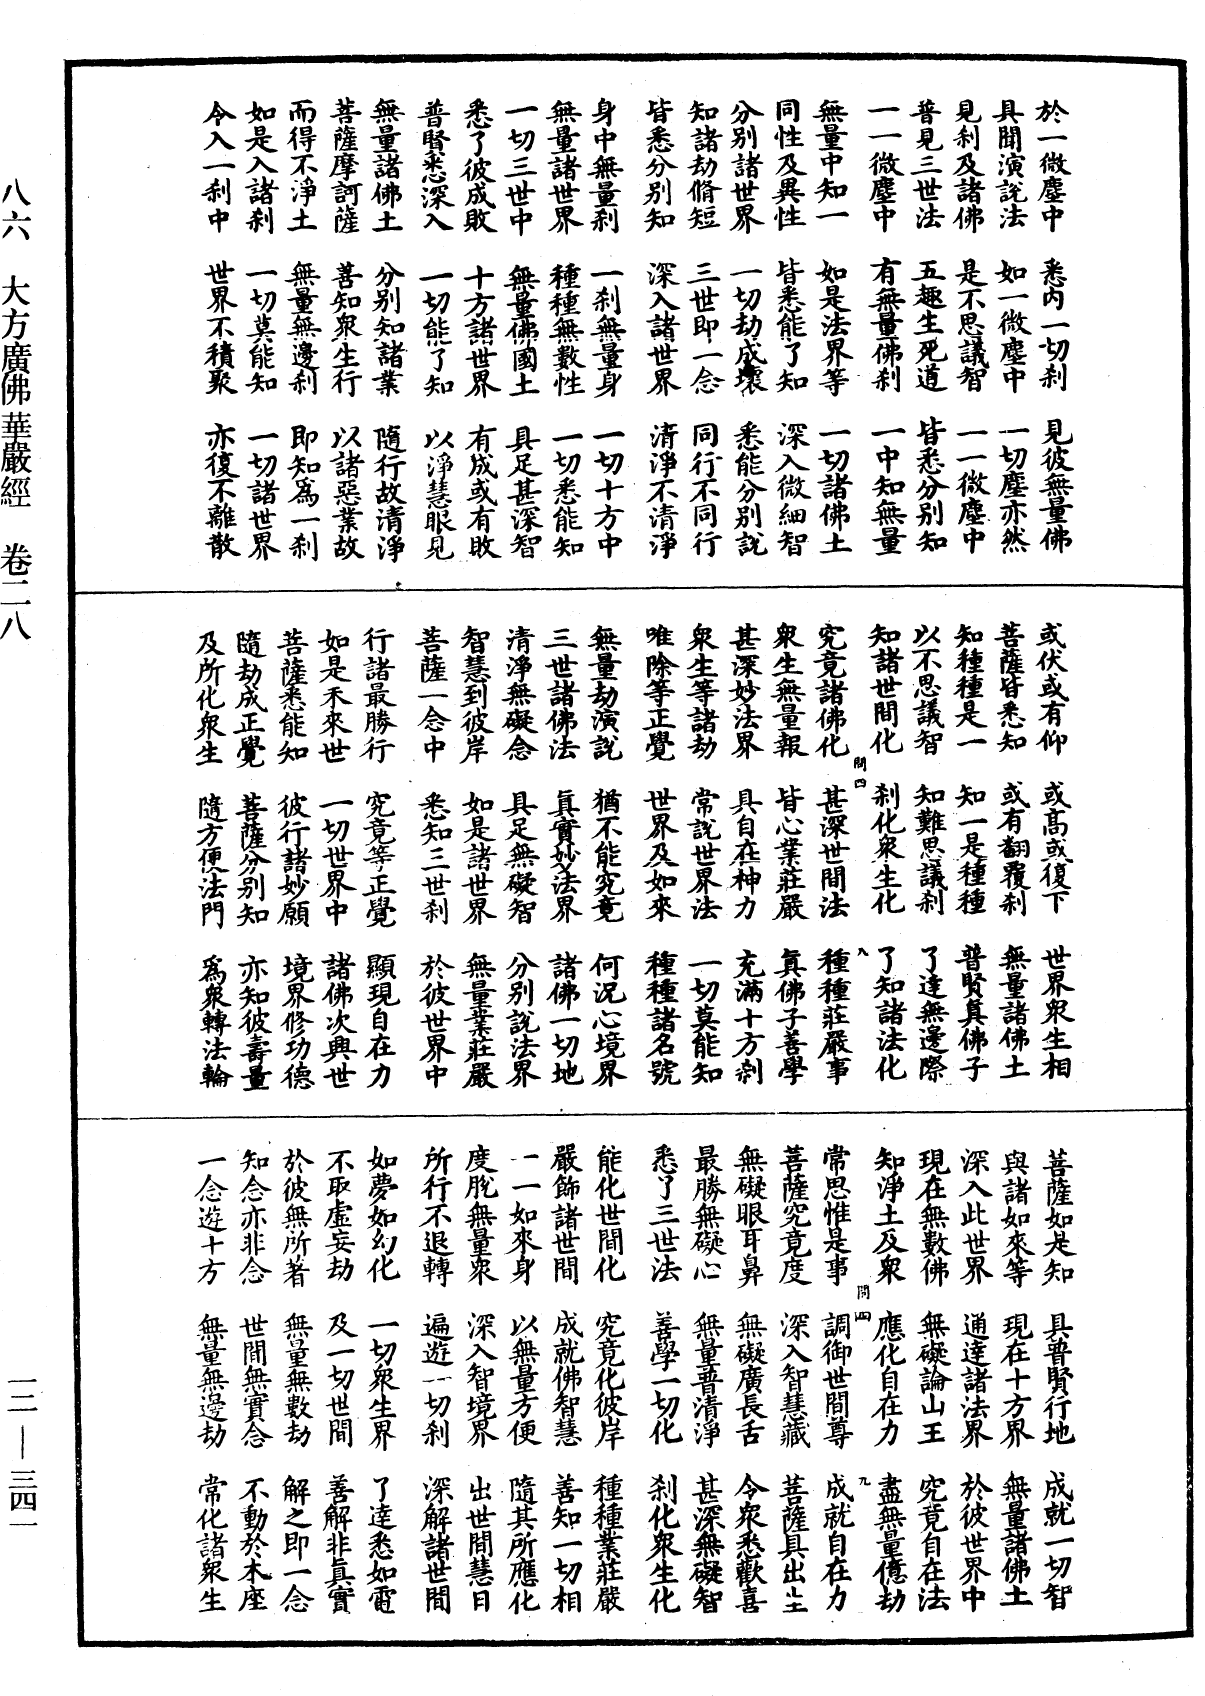 於一微塵中　悉内一切刹　見彼無量佛
具聞演說法　如一微塵中　一切塵亦然
見刹及諸佛　是不思議智　一一微塵中
普見三世法　五趣生死道　皆悉分别知
一一微塵中　有無量佛刹　一中知無量
無量中知一　如是法界等　一切諸佛土
同性及異性　皆悉能了知　深入微細智
分别諸世界　一切劫成壞　悉能分别說
知諸劫脩短　三世即一念　同行不同行
皆悉分别知　深入諸世界　清淨不清淨
身中無量刹　一刹無量身　一切十方中
無量諸世界　種種無數性　一切悉能知
一切三世中　無量佛國土　具足甚深智
悉了彼成敗　十方諸世界　有成或有敗
普賢悉深入　一切能了知　以淨慧眼見
無量諸佛土　分别知諸業　隨行故清淨
菩薩摩訶薩　善知衆生行　以諸惡業故
而得不淨土　無量無邊刹　即知爲一刹
如是入諸刹　一切莫能知　一切諸世界
令入一刹中　世界不積聚　亦復不離散
或伏或有仰　或高或復下　世界衆生相
菩薩皆悉知　或有翻覆刹　無量諸佛土
知種種是一　知一是種種　普賢真佛子
以不思議智　知難思議刹　了達無邊際
知諸世間化　刹化衆生化　了知諸法化
究竟諸佛化　甚深世間法　種種莊嚴事
間四　八
衆生無量報　皆心業莊嚴　真佛子善學
甚深妙法界　具自在神力　充滿十方刹
衆生等諸劫　常說世界法　一切莫能知
唯除等正覺　世界及如來　種種諸名號
無量劫演說　猶不能究竟　何況心境界
三世諸佛法　真實妙法界　諸佛一切地
清淨無礙念　具足無礙智　分别說法界
智慧到彼岸　如是諸世界　無量業莊嚴
菩薩一念中　悉知三世刹　於彼世界中
行諸最勝行　究竟等正覺　顯現自在力
如是未來世　一切世界中　諸佛次興世
菩薩悉能知　彼行諸妙願　境界修功德
隨劫成正覺　菩薩分别知　亦知彼壽量
及所化衆生　隨方便法門　爲衆轉法輪
菩薩如是知　具普賢行地　成就一切智
與諸如來等　現在十方界　無量諸佛土
深入此世界　通達諸法界　於彼世界中
現在無數佛　無礙論山王　究竟自在法
知淨土及衆　應化自在力　盡無量億劫
常思惟是事　調御世間尊　成就自在力
間四　九
菩薩究竟度　深入智慧藏　菩薩具出生
無礙眼耳鼻　無礙廣長舌　令衆悉歡喜
最勝無礙心　無量普清淨　甚深無礙智
悉了三世法　善學一切化　刹化衆生化
能化世間化　究竟化彼岸　種種業莊嚴
嚴飾諸世間　成就佛智慧　善知一切相
一一如來身　以無量方便　隨其所應化
度脱無量衆　深入智境界　出世間慧日
所行不退轉　遍遊一切刹　深解諸世間
如夢如幻化　一切衆生界　了達悉如電
不取虛妄劫　及一切世間　善解非真實
於彼無所著　無量無數劫　解之即一念
知念亦非念　世間無實念　不動於本座
一念遊十方　無量無邊劫　常化諸衆生
八六　大方廣佛華嚴經　卷二八
一二—三四一